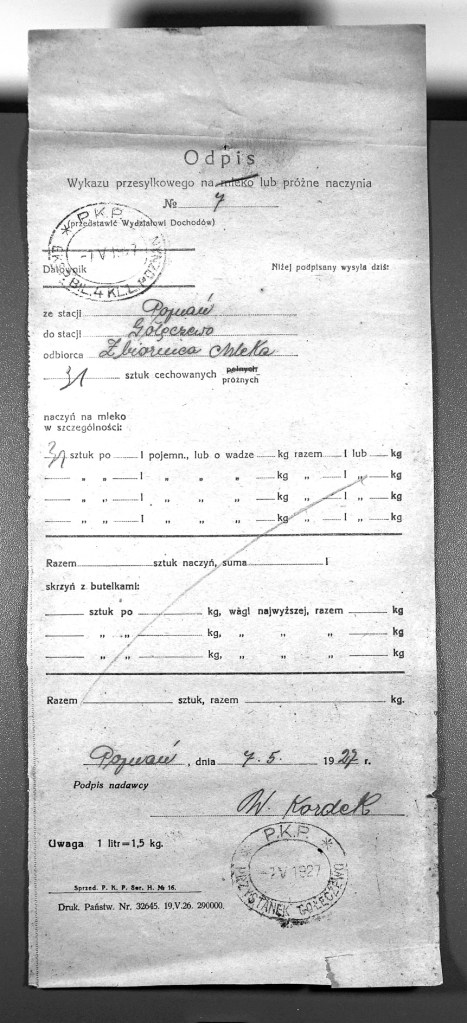 Odpis
Wykazu przesyłkowego na mleko lub próżne naczynia
№ 7
(przedstawić Wydziałowi Dochodów)
P.K.P.
-7 V 1927
BIL. 4 KL.
Datownik
Niżej podpisany wysyła dziś:
ze stacji Poznań
do stacji Gołęczewo
odbiorca Zbiornica Mleka
31 sztuk cechowanych pełnych
próżnych
naczyń na mleko
w szczególności:
31 sztuk po l pojemn., lub o wadze kg razem l lub kg
„ „ l „ „ „ kg „ l „ kg
„ „ l „ „ „ kg „ l „ kg
„ „ l „ „ „ kg „ l „ kg
Razem sztuk naczyń, suma l
skrzyń z butelkami:
sztuk po kg, wagi najwyższej, razem kg
„ „ kg, „ „ „ kg
„ „ kg, „ „ „ kg
Razem sztuk, razem kg.
Poznań, dnia 7. 5. 1927 r.
Podpis nadawcy
W. Kordek
Uwaga 1 litr=1,5 kg.
P.K.P.
-7 V 1927
PRZYSTANEK GOŁĘCZEWO
Sprzed. P. K. P. Ser. H. № 16.
Druk. Państw. Nr. 32645. 19.V.26. 290000.